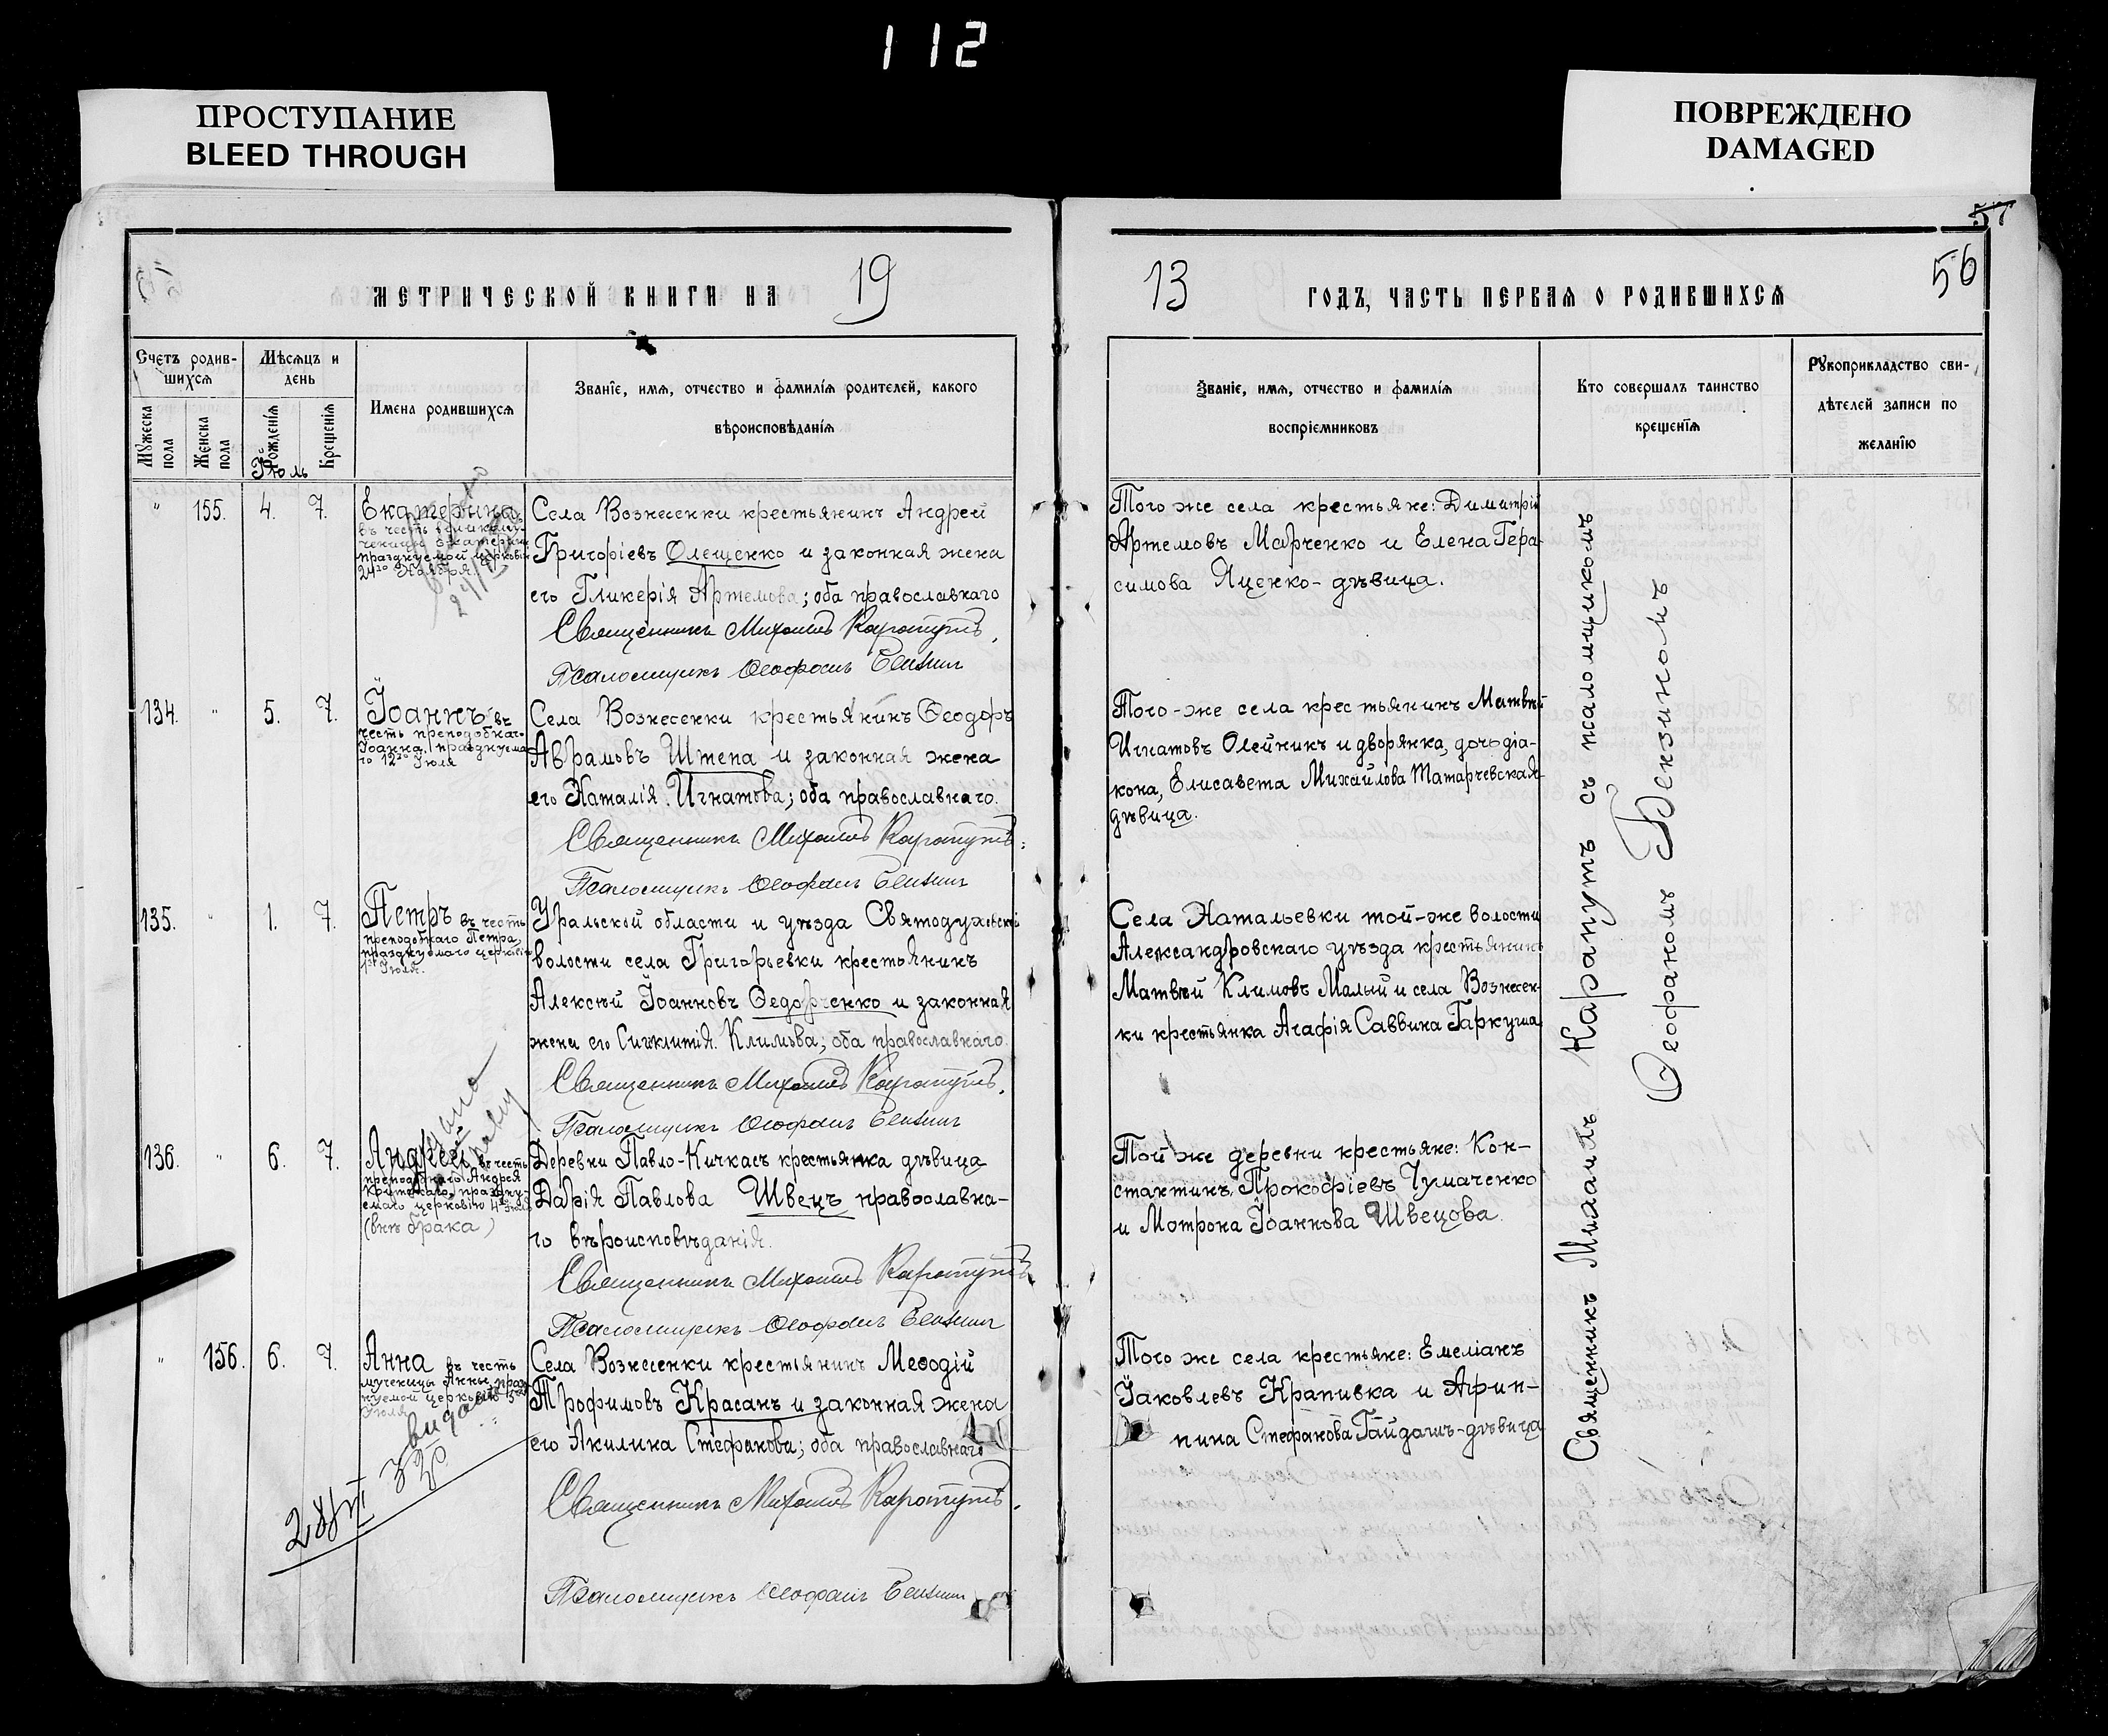 112
ПРОСТУПАНИЕ
BLEED THROUGH
ПОВРЕЖДЕНО
DAMAGED
57
56
МЕТРИЧЕСКОЙ КНИГИ НА 19
13 ГОДЪ, ЧАСТЬ ПЕРВАЯ О РОДИВШИХСЯ
Счетъ родив-
шихся
Мужеска
пола
Женска
пола
Мѣсяцъ и
день
Рожденїя
Крещенїя
Іюль
Имена родившихся
Званїе, имя, отчество и фамилїя родителей, какого
вѣроисповѣданїя
Званїе, имя, отчество и фамилїя
воспрїемниковъ
Кто совершалъ таинство
крещенїя
Рукоприкладство сви-
дѣтелей записи по
желанїю
" 155. 4. 7.
Екатерина
въ честь великому-
ченицы Екатерины
празднуемой церковію
24го Ноября.
Села Вознесенки крестьянинъ Андрей
Григоріевъ Олещенко и законная жена
его Гликерія Артемова; оба православнаго
Священникъ Михаилъ Карапутъ.
Псаломщикъ Ѳеофанъ Бензинъ
Того же села крестьяне: Димитрій
Артемовъ Марченко и Елена Гера-
симова Яценко - дѣвица.
134. " 5. 7.
Іоаннъ въ
честь преподобнаго
Іоанна, празднуема-
го 12го Іюля
Села Вознесенки крестьянинъ Ѳеодоръ
Аврамовъ Штепа и законная жена
его Наталія Игнатова; оба православнаго.
Священникъ Михаилъ Карапутъ.
Псаломщикъ Ѳеофанъ Бензинъ
Того-же села крестьянинъ Матвѣй
Игнатовъ Олейникъ и дворянка, дочь діа-
кона, Елисавета Михайлова Татарчевская-
дѣвица.
135. " 1. 7.
Петръ въ честь
преподобнаго Петра,
празднуемаго церковію
1го Іюля.
Уральской области и уѣзда Святодуховской
волости села Григорьевки крестьянинъ
Алексѣй Іоанновъ Ѳедорченко и законная
жена его Сигклитія Климова; оба православнаго.
Священникъ Михаилъ Карапутъ.
Псаломщикъ Ѳеофанъ Бензинъ
Села Натальевки той-же волости
Александровскаго уѣзда крестьянинъ
Матвѣй Климовъ Малый и села Вознесен-
ки крестьянка Агафія Саввина Гаркуша
136. " 6. 7.
Андрей въ честь
преподобнаго Андрея
Критскаго, праздну-
емаго церковію 4го Іюля
(внѣ брака)
Деревни Павло-Кичкасъ крестьянка дѣвица
Дарія Павлова Швецъ православна-
го вѣроисповѣданія.
Священникъ Михаилъ Карапутъ
Псаломщикъ Ѳеофанъ Бензинъ
Той же деревни крестьяне: Кон-
стантинъ Прокофіевъ Чумаченко
и Мотрона Іоаннова Швецова.
" 156. 6. 7.
Анна въ честь
мученицы Анны, празд-
нуемой церковію 5го
Іюля
Села Вознесенки крестьянинъ Меѳодій
Трофимовъ Красанъ и законная жена
его Акилина Стефанова; оба православнаго
Священникъ Михаилъ Карапутъ.
Псаломщикъ Ѳеофанъ Бензинъ
Того же села крестьяне: Емеліанъ
Іаковлевъ Крапивка и Агрип-
пина Стефанова Гайдашъ-дѣвица
Священникъ Михаилъ Карапутъ съ псаломщикомъ
Ѳеофаномъ Бензиномъ